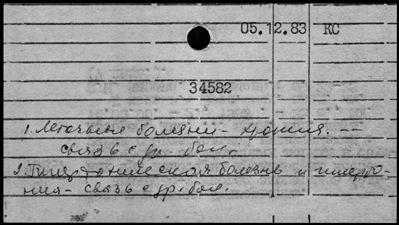 05.12.83 КС
34582
1. Легочные болезни -
связь с др. бол.
2. Гипертоническая болезнь и гиперто-
ния - связь с др. бол.